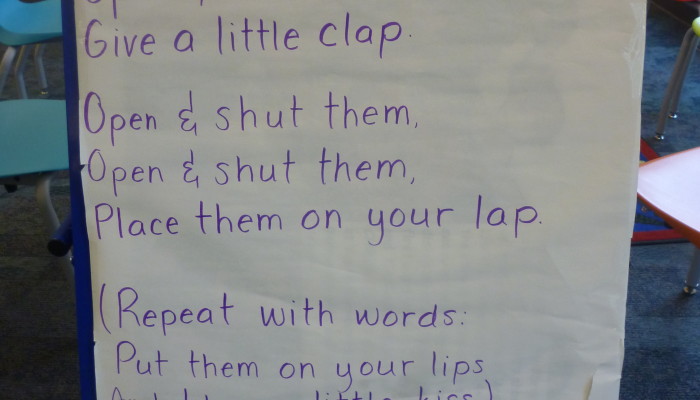 Give a little clap.
Open & shut them,
Open & shut them,
Place them on your lap.
(Repeat with words:
Put them on your lips
little kiss)